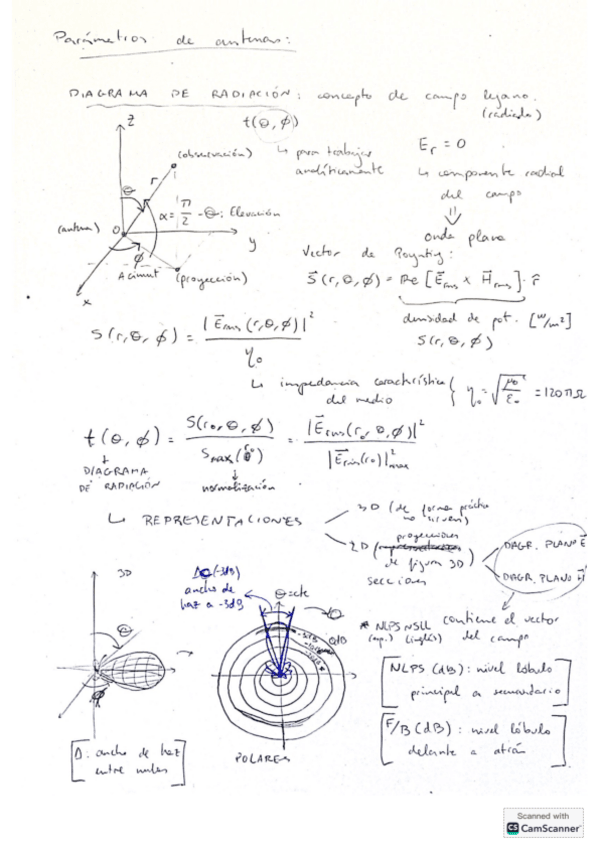 Parámetros de antenas:
DIAGRAMA DE RADIACIÓN: concepto de campo lejano.
(radiado)
t(θ, ϕ)
↳ para trabajar
analíticamente
E_r = 0
↳ componente radial
del campo
⇓
onda plana
z
(observación)
r
θ
α = π/2 - θ: Elevación
(antena) O
y
ϕ
Acimut
(proyección)
x
Vector de Poynting:
S⃗(r, θ, ϕ) = Re [E⃗rms x H⃗rms] · r̂
densidad de pot. [W/m²]
S(r, θ, ϕ)
S(r, θ, ϕ) = |E⃗rms(r, θ, ϕ)|² / η₀
↳ impedancia característica
del medio
η₀ = √(μ₀/ε₀) = 120πΩ
t(θ, ϕ) = S(r₀, θ, ϕ) / Smax(r₀) = |E⃗rms(r₀, θ, ϕ)|² / |E⃗rms(r₀)|²max
DIAGRAMA
DE RADIACIÓN
normalización
↳ REPRESENTACIONES
3D (de forma práctica
no sirven)
2D (proyecciones
de figura 3D)
secciones
DIAGR. PLANO E
DIAGR. PLANO H
contiene el vector
del campo
3D
θ
ϕ
Δθ(-3dB)
ancho de
haz a -3dB
θ=cte
0dB
POLARES
Δ: ancho de haz
entre nulos
* NLPS NSLL
(esp.) (inglés)
NLPS (dB): nivel lóbulo
principal a secundario
F/B (dB): nivel lóbulo
delante a atrás
Scanned with
CS CamScanner